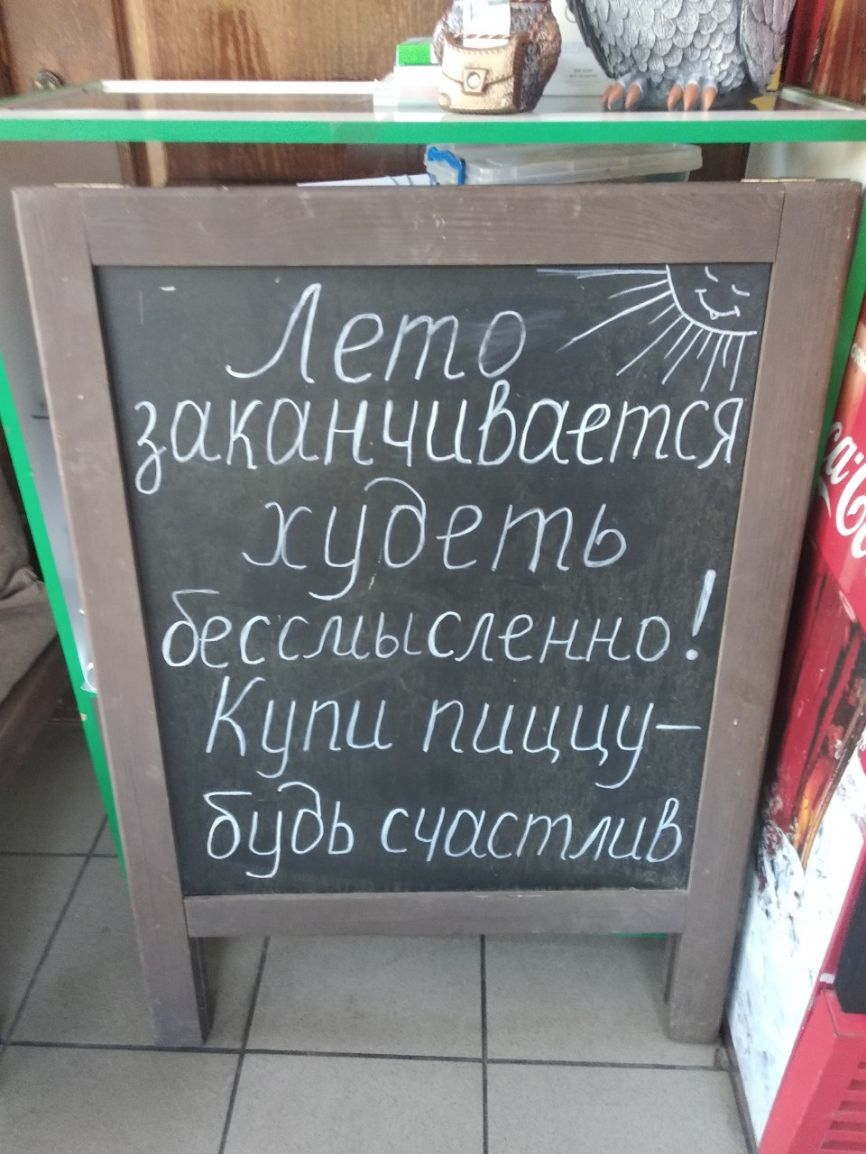 Лето
заканчивается
худеть
бессмысленно!
Купи пиццу-
будь счастлив